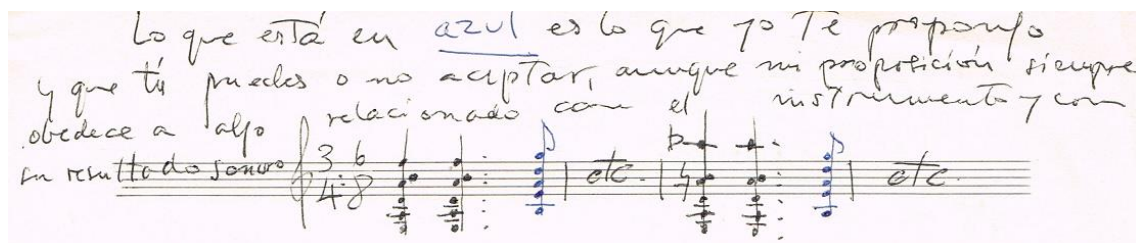 Lo que está en azul es lo que yo te propongo
y que tú puedes o no aceptar, aunque mi proposición siempre
obedece a algo relacionado con el instrumento y con
su resultado sonoro
3 6
4 8
etc.
etc.